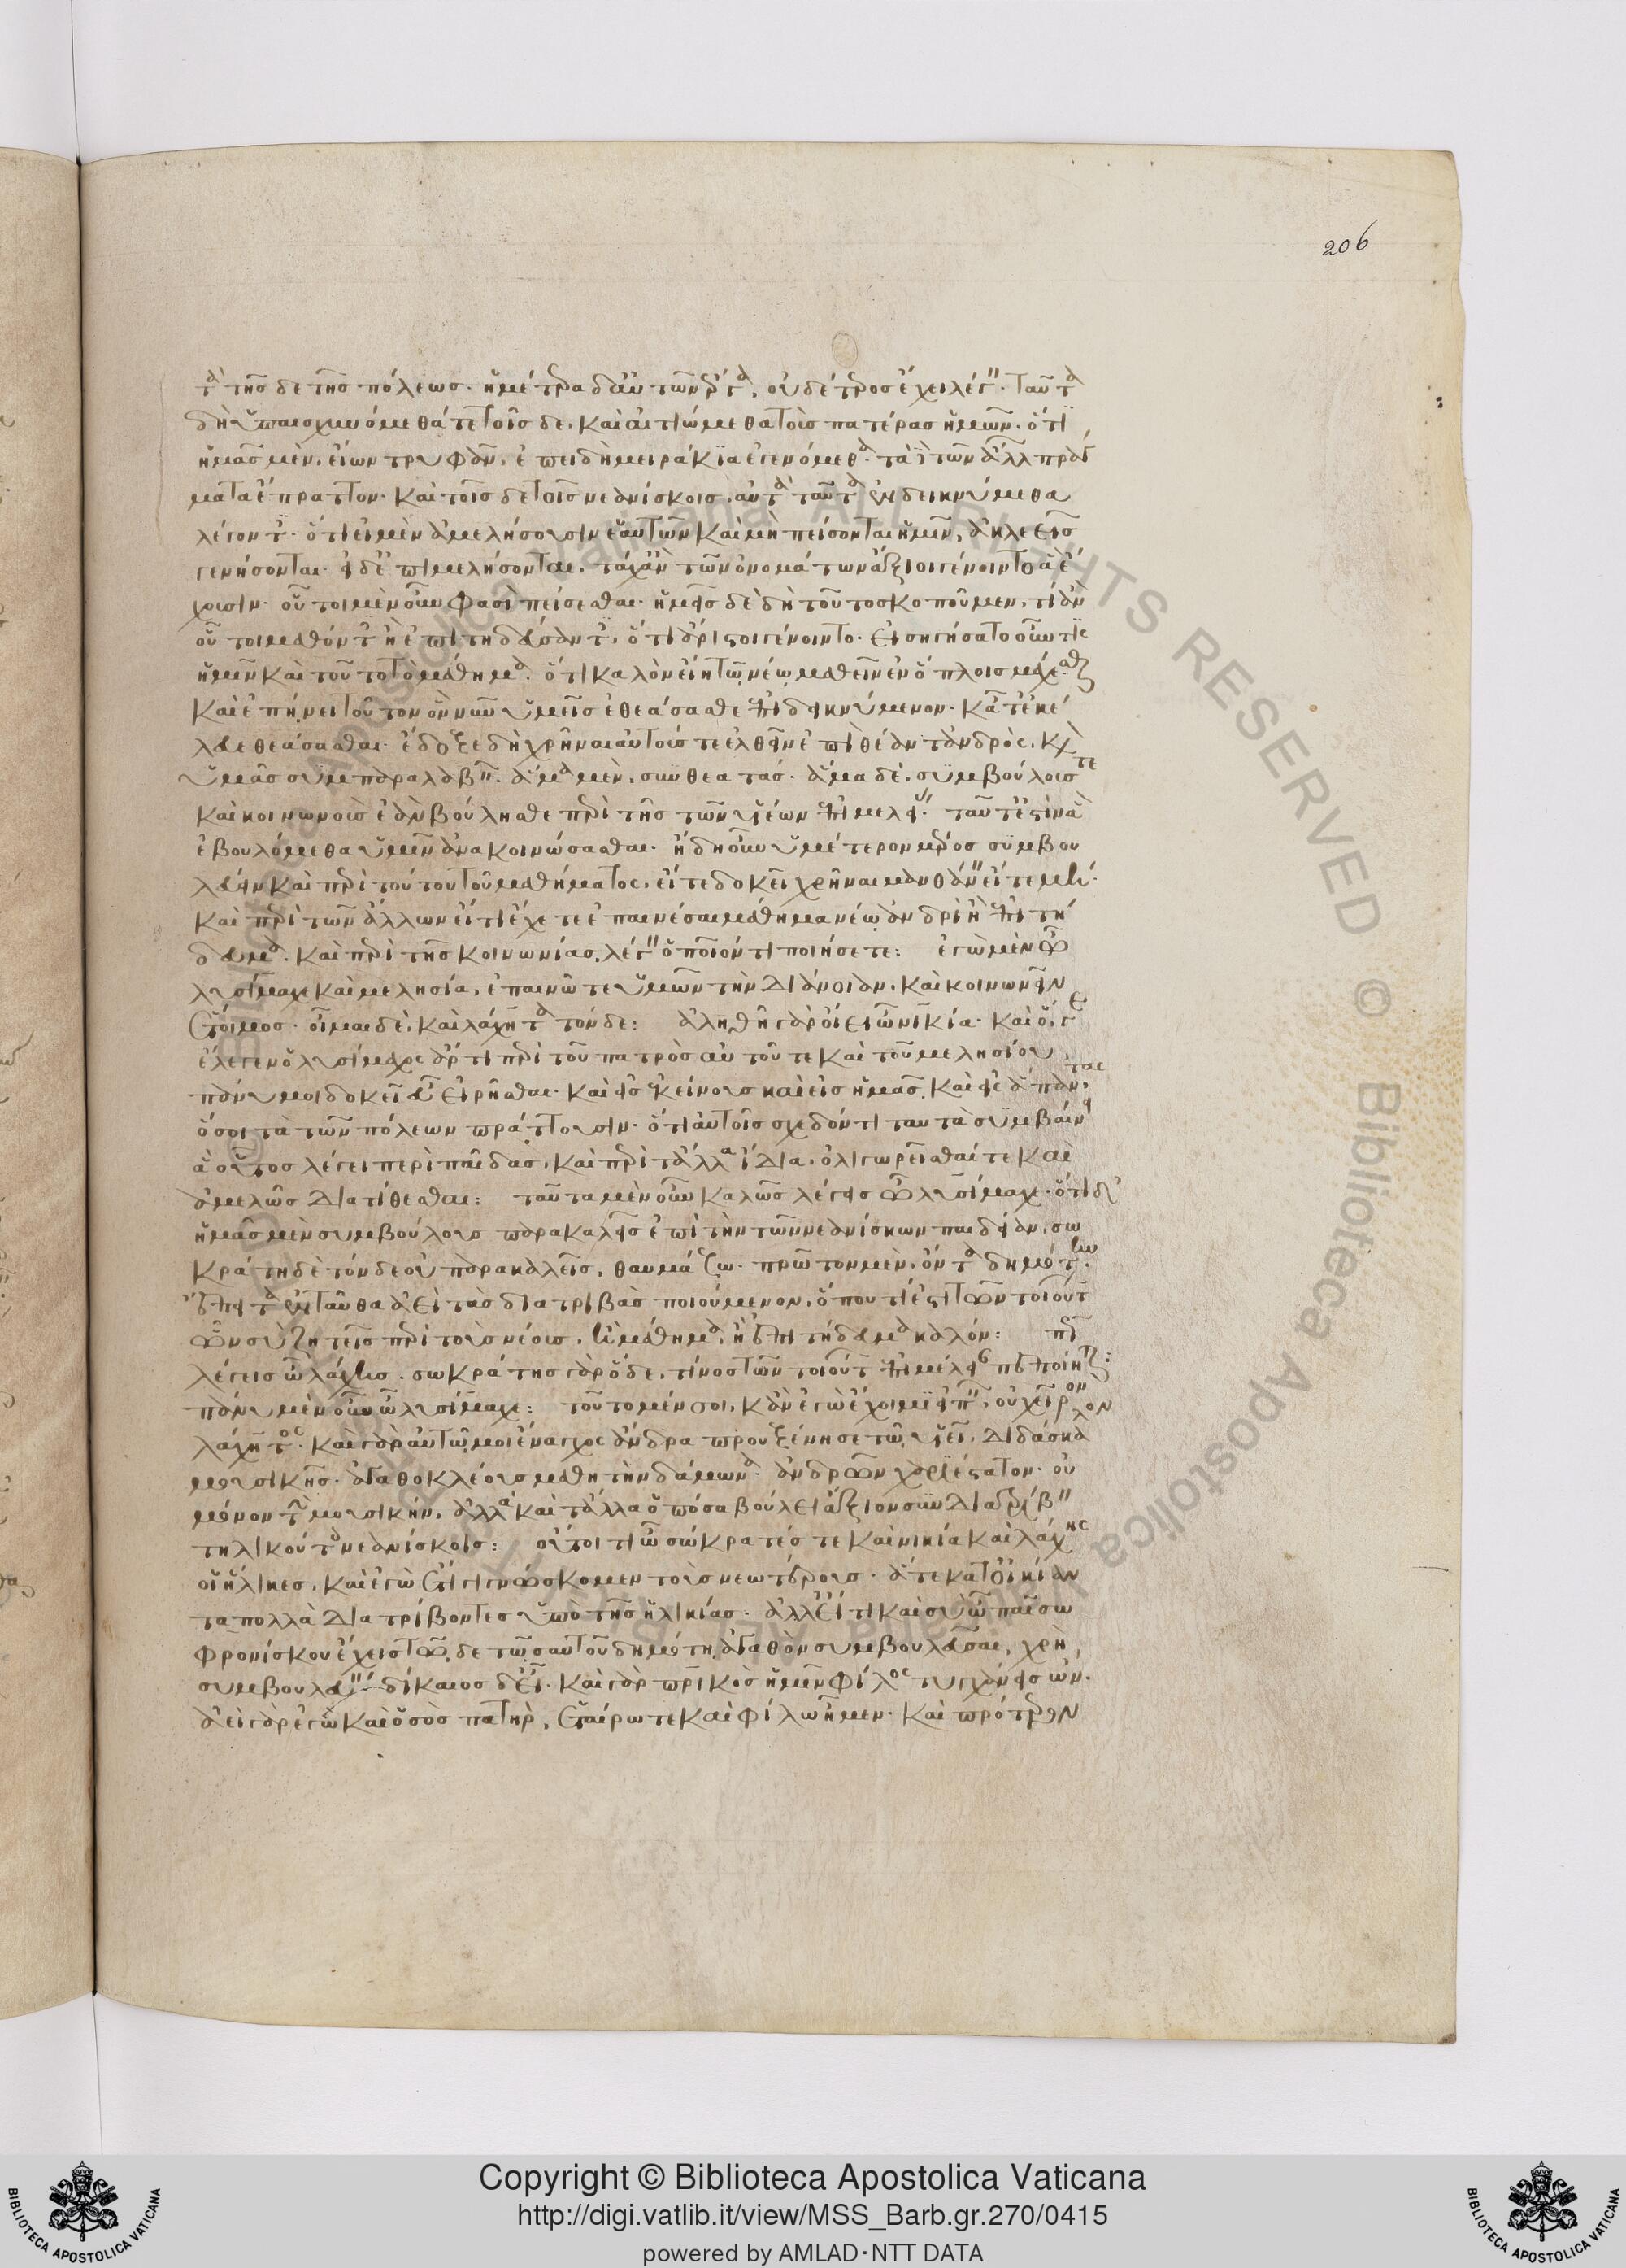 206
τὰ τῆσδε τῆς πόλεως· ἡμέτερα δ' αὐτῶν ἔργα, οὐδέτερος ἔχει λέγειν. ταῦτα
δὴ ὑπαισχυνόμεθά τε τούσδε. καὶ αἰτιώμεθα τοὺς πατέρας ἡμῶν. ὅτι
ἡμᾶς μὲν, εἴων τρυφᾶν, ἐπειδὴ μειράκια ἐγενόμεθα. τὰ δὲ τῶν ἄλλων πράγ
ματα ἔπραττον. καὶ τοῖσδε τοῖς νεανίσκοις, αὐτὰ ταῦτα ἐνδεικνύμεθα
λέγοντες. ὅτι εἰ μὲν ἀμελήσουσιν ἑαυτῶν καὶ μὴ πείσονται ἡμῖν, ἀκλεεῖς
γενήσονται. εἰ δ' ἐπιμελήσονται, τάχ' ἂν τῶν ὀνομάτων ἄξιοι γένοιντο ἃ ἔ
χουσιν. οὗτοι μὲν οὖν φασὶ πείσεσθαι. ἡμεῖς δὲ δὴ τοῦτο σκοποῦμεν, τί ἂν
οὗτοι μαθόντες ἢ ἐπιτηδεύσαντες, ὅτι ἄριστοι γένοιντο. εἰσηγήσατο οὖν τις
ἡμῖν καὶ τοῦτο τὸ μάθημα. ὅτι καλὸν εἴη τῷ νέῳ μαθεῖν ἐν ὅπλοις μάχεσθαι
καὶ ἐπῄνει τοῦτον ὃν νῦν ὑμεῖς ἐθεάσασθε ἐπιδεικνύμενον. κᾆτ' ἐκέ
λευε θεάσασθαι. ἔδοξε δὴ χρῆναι αὐτούς τε ἐλθεῖν ἐπὶ θέαν τἀνδρὸς, καὶ
ὑμᾶς συμπαραλαβεῖν. ἅμα μὲν, συνθεατάς. ἅμα δὲ, συμβούλους τε
καὶ κοινωνοὺς ἐὰν βούλησθε περὶ τῆς τῶν ὑέων ἐπιμελείας. ταῦτ' ἐστὶν ἃ
ἐβουλόμεθα ὑμῖν ἀνακοινώσασθαι. ἤδη οὖν ὑμέτερον μέρος συμβου
λεύειν καὶ περὶ τούτου τοῦ μαθήματος, εἴτε δοκεῖ χρῆναι μανθάνειν εἴτε μή.
καὶ περὶ τῶν ἄλλων εἴ τι ἔχετε ἐπαινέσαι μάθημα νέῳ ἀνδρὶ ἢ ἐπιτή
δευμα. καὶ περὶ τῆς κοινωνίας, λέγειν ὁποῖόν τι ποιήσετε: ἐγὼ μὲν ὦ
λυσίμαχε καὶ μελησία, ἐπαινῶ τε ὑμῶν τὴν διάνοιαν. καὶ κοινωνεῖν
ἕτοιμος. οἶμαι δὲ, καὶ λάχητα τόνδε: ἀληθῆ γὰρ οἴει ὦ νικία. καὶ ὅ γε
ἔλεγεν ὁ λυσίμαχος ἄρτι περὶ τοῦ πατρὸς αὐτοῦ τε καὶ τοῦ μελησίου,
πάνυ μοι δοκεῖ εὖ εἰρῆσθαι. καὶ εἰς ἐκείνους καὶ εἰς ἡμᾶς. καὶ εἰς ἅπαντας
ὅσοι τὰ τῶν πόλεων πράττουσιν. ὅτι αὐτοῖς σχεδόν τι ταυτὰ συμβαίνει
ἃ οὗτος λέγει περὶ παῖδας, καὶ περὶ τἆλλα ἴδια, ὀλιγωρεῖσθαί τε καὶ
ἀμελῶς διατίθεσθαι: ταῦτα μὲν οὖν καλῶς λέγεις ὦ λυσίμαχε. ὅτι δ'
ἡμᾶς μὲν συμβούλους παρακαλεῖς ἐπὶ τὴν τῶν νεανίσκων παιδείαν, σω
κράτη δὲ τόνδε οὐ παρακαλεῖς, θαυμάζω. πρῶτον μὲν, ὄντα δημότην.
ἔπειτα ἐνταῦθα ἀεὶ τὰς διατριβὰς ποιούμενον, ὅπου τί ἐστι τῶν τοιούτων
ὧν σὺ ζητεῖς περὶ τοὺς νέους, ἢ μάθημα, ἢ ἐπιτήδευμα καλόν: πῶς
λέγεις ὦ λάχης. σωκράτης γὰρ ὅδε, τινὸς τῶν τοιούτων ἐπιμέλειαν πεποίηται:
πάνυ μὲν οὖν ὦ λυσίμαχε: τοῦτο μέν σοι, κἂν ἐγὼ ἔχοιμι εἰπεῖν, οὐ χεῖρον
λάχητος. καὶ γὰρ αὐτῷ μοι ἔναγχος ἄνδρα προυξένησε τῷ ὑεῖ, διδάσκαλον
μουσικῆς. ἀγαθοκλέους μαθητὴν δάμωνα. ἀνδρῶν χαριέστατον. οὐ
μόνον τὴν μουσικήν, ἀλλὰ καὶ τἆλλα ὁπόσα βούλει ἄξιον συνδιατρίβειν
τηλικούτοις νεανίσκοις: οὔτοι τι ὦ σώκρατές τε καὶ νικία καὶ λάχης
οἱ ἡλίκες, καὶ ἐγὼ ἔτι γιγνώσκομεν τοὺς νεωτέρους. ἅτε κατ' οἰκίαν
τὰ πολλὰ διατρίβοντες ὑπὸ τῆς ἡλικίας. ἀλλ' εἴ τι καὶ σὺ ὦ παῖ σω
φρονίσκου ἔχεις τῷδε τῷ σαυτοῦ δημότῃ ἀγαθὸν συμβουλεῦσαι, χρὴ
συμβουλεύειν. δίκαιος δ' εἶ. καὶ γὰρ πατρικὸς ἡμῖν φίλος τυγχάνεις ὤν.
ἀεὶ γὰρ ἐγὼ καὶ ὁ σὸς πατὴρ, ἑταίρω τε καὶ φίλω ἦμεν. καὶ πρότερον
Copyright © Biblioteca Apostolica Vaticana
http://digi.vatlib.it/view/MSS_Barb.gr.270/0415
powered by AMLAD·NTT DATA